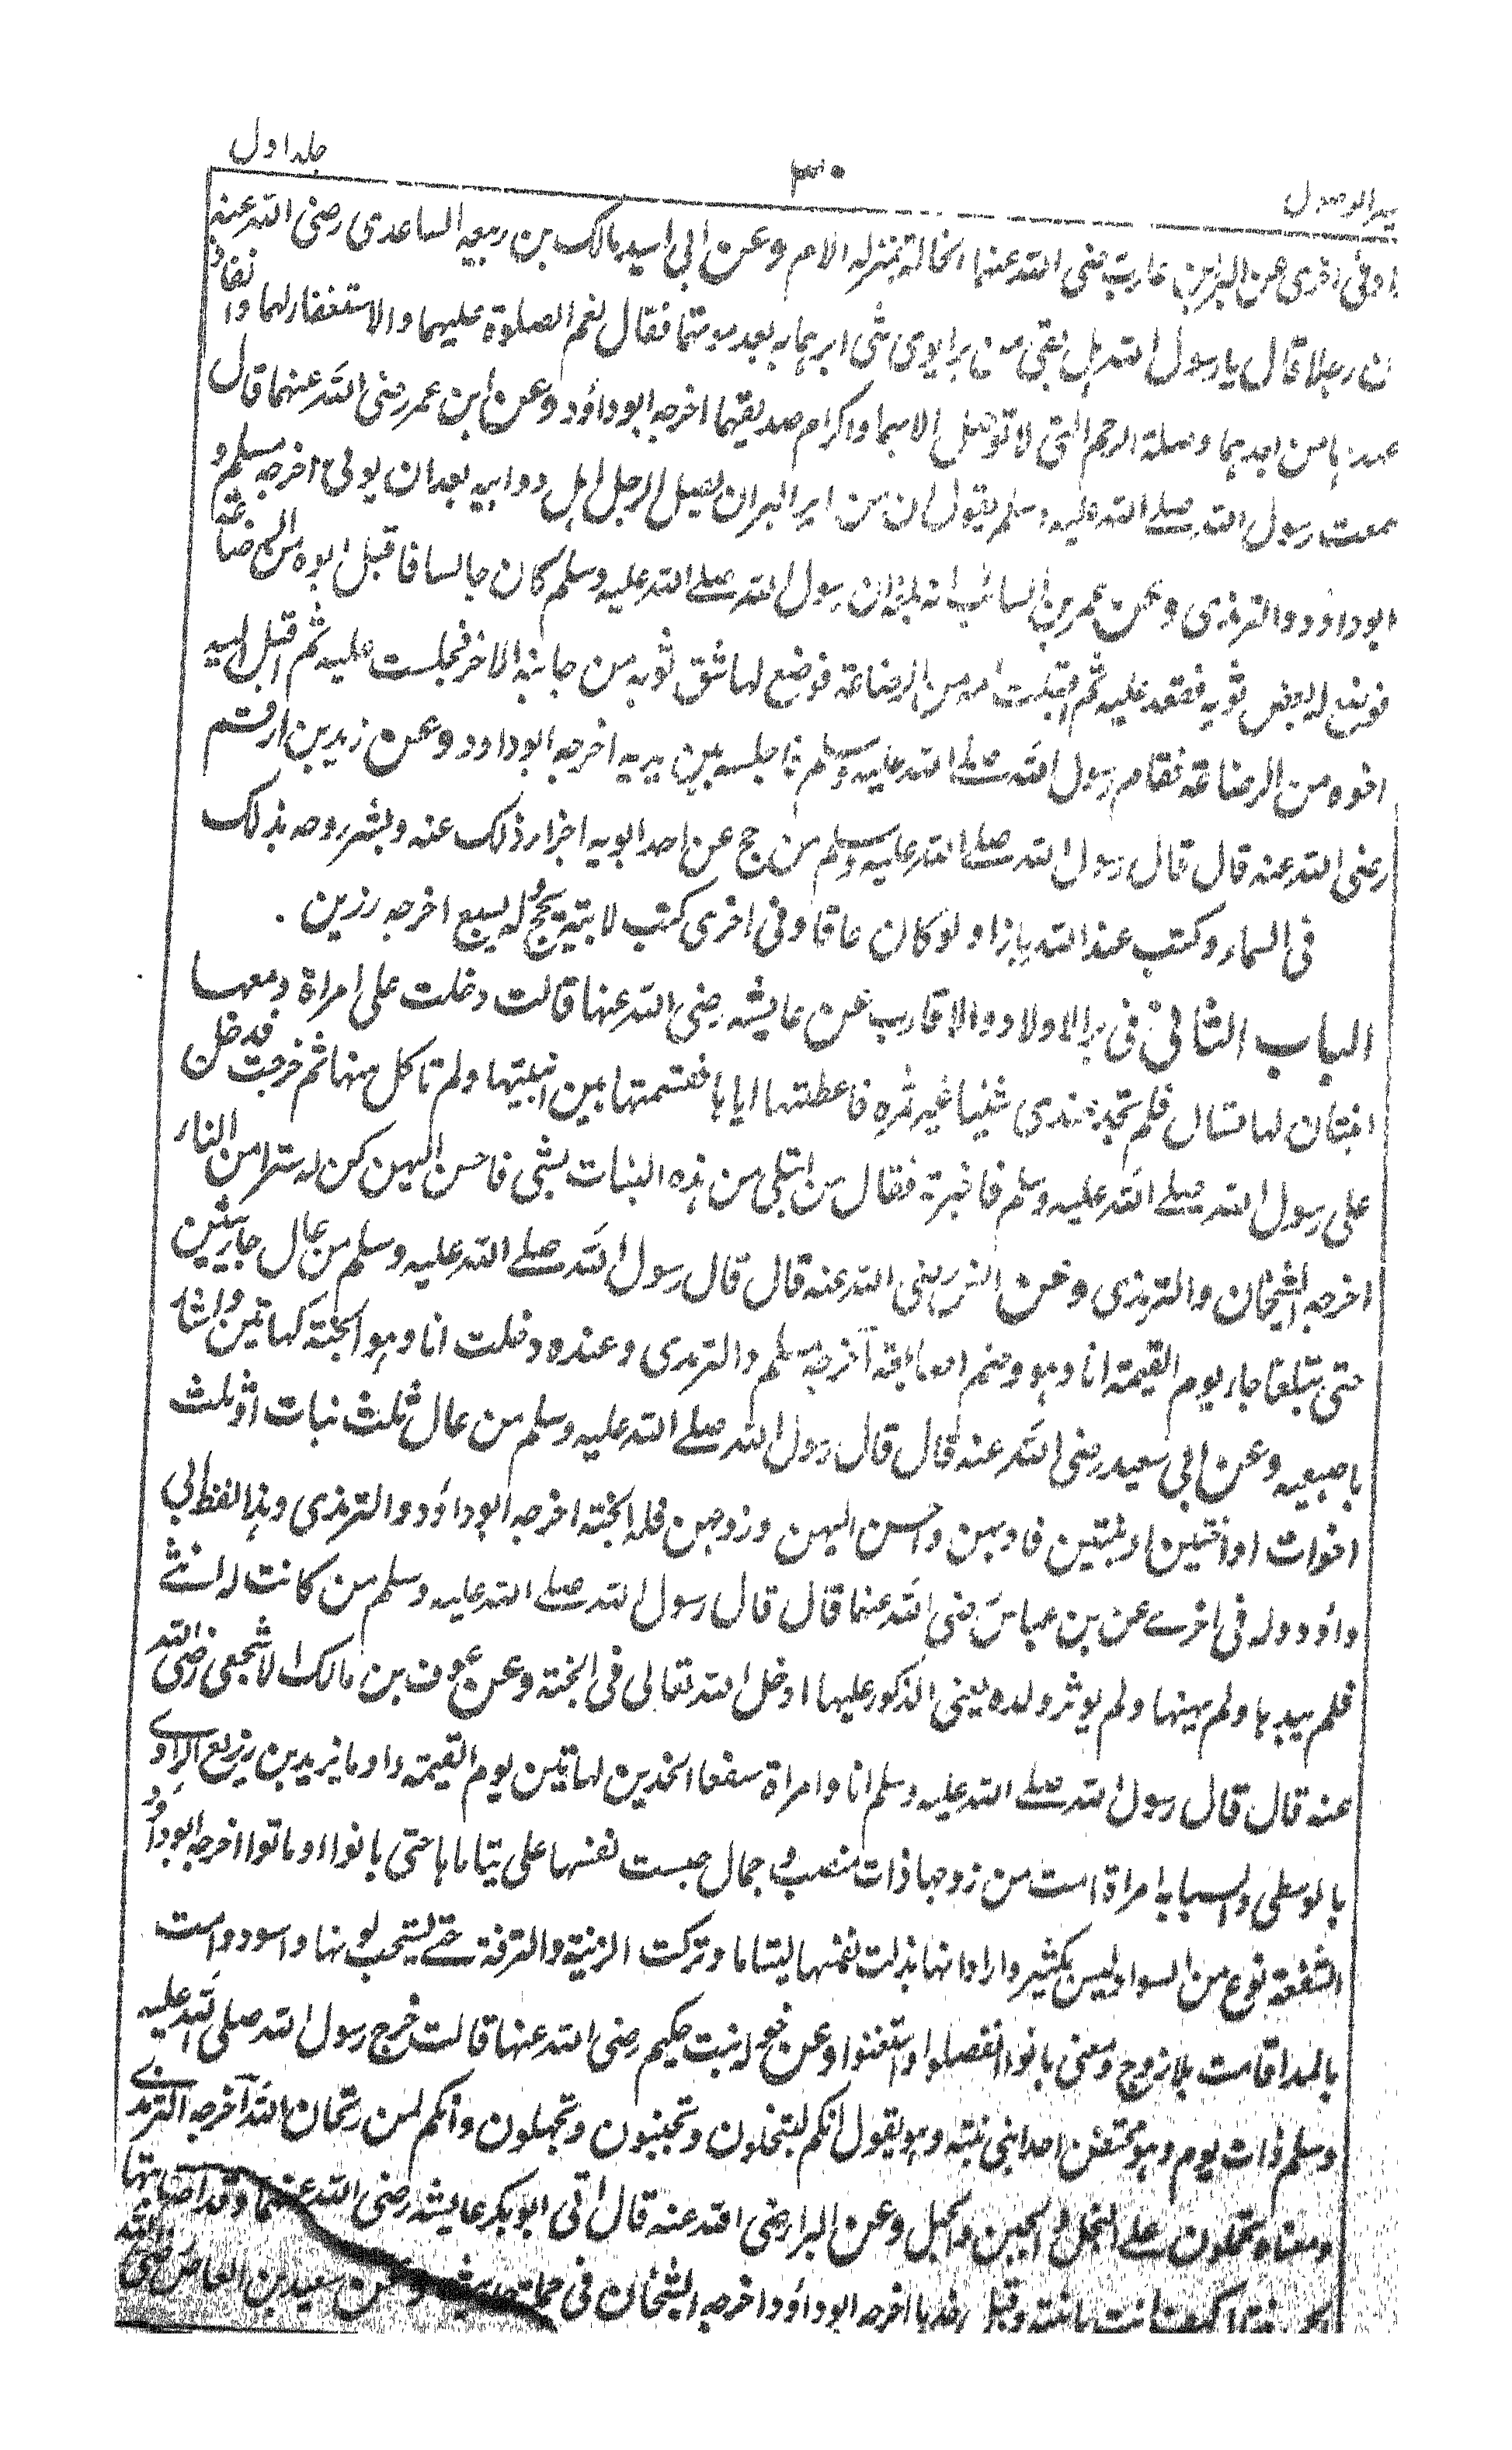 جلد اول
٣٠
یسرالوصول
وفی اخری عن البراء بن عازب رضی الله عنهما الخالة بمنزله الام وعن ابی اسید مالک بن ربیعه الساعدی رضی الله عنه
ن رجلا قال یا رسول الله هل بقی من بر ابوی شی ابرهما به بعد موتهما فقال نعم الصلوة علیهما والاستغفار لهما وانفاذ
من بعدهما وصلة الرحم التی لا توصل الا بهما واکرام صدیقهما اخرجه ابوداؤد وعن ابن عمر رضی الله عنهما قال
سمعت رسول الله صلے الله علیه وسلم یقول ان من ابر البر ان یصل الرجل اهل ود ابیه بعد ان یولی اخرجه مسلم و
ابوداؤد والترمذی وعن عمر بن السائب انه بلغه ان رسول الله صلے الله علیه وسلم کان جالسا فاقبل ابوه من الرضاعة
فوضع له بعض ثوبه فقعد علیه ثم اقبلت امه من الرضاعة فوضع لها شق ثوبه من جانبه الاخر فجلست علیه ثم اقبل الیه
اخوه من الرضاعة فقام رسول الله صلے الله علیه وسلم فاجلسه بین یدیه اخرجه ابوداود وعن زید بن ارقم
رضی الله عنه قال قال رسول الله صلے الله علیه وسلم من حج عن احد ابویه اجزا ذلک عنه وبشر روحه بذلک
فی السماء وکتب عند الله بارا ولو کان عاقا وفی اخری کتب لابیه بحج وله بسبع اخرجه رزین ۔
الباب الثانی فی بر الاولاد والاقارب عن عایشه رضی الله عنها قالت دخلت علی امراة ومعها
ابنتان لها تسال فلم تجد عندی شیئا غیر تمره فاعطیتها ایاها فقسمتها بین ابنتیها ولم تاکل منها ثم خرجت فدخل
علی رسول الله صلے الله علیه وسلم فاخبرته فقال من ابتلی من هذه البنات بشی فاحسن الیهن کن له سترا من النار
اخرجه الشیخان والترمذی وعن انس رضی الله عنه قال قال رسول الله صلے الله علیه وسلم من عال جاریتین
حتی تبلغا جاء یوم القیمة انا وهو وضم اصابعه اخرجه مسلم والترمذی وعنده دخلت انا وهو الجنة کهاتین واشار
باصبعیه وعن ابی سعید رضی الله عنه قال قال رسول الله صلے الله علیه وسلم من عال ثلث بنات او ثلث
اخوات او اختین او بنتین فادبهن واحسن الیهن وزوجهن فله الجنة اخرجه ابوداؤد والترمذی وهذا لفظ ابی
داؤد وله فی اخرے عن بن عباس رضی الله عنهما قال قال رسول الله صلے الله علیه وسلم من کانت له انثے
فلم یئدها ولم یهنها ولم یوثر ولده یعنی الذکور علیها ادخله الله تعالی فی الجنة وعن عوف بن مالک الاشجعی رضی الله
عنه قال قال رسول الله صلے الله علیه وسلم انا وامراة سفعا الخدین کهاتین یوم القیمة واوما یزید بن زریع الراوے
بالوسطی والسبابة امراة امت من زوجها ذات منصب وجمال حبست نفسها علی یتاماها حتی بانوا او ماتوا اخرجه ابوداؤد
السفعة نوع من السواد لیس بکثیر واراد انها بذلت نفسها لیتاما وترکت الزینة والترفة حتے یشحب لونها واسود وامت
بالمد اقامت بلا زوج ومعنی بانوا انفصلوا واستغنوا وعن خوله بنت حکیم رضی الله عنها قالت خرج رسول الله صلی الله علیه
وسلم ذات یوم وهو محتضن احد ابنی بنته وهو یقول انکم لتبخلون وتجبنون وتجهلون وانکم لمن ریحان الله اخرجه الترمذے
ومعناه تحملون علے البخل والجبن والجهل وعن البراء رضی الله عنه قال اتی ابوبکر عایشة رضی الله عنهما وقد اصابتها
فقال کیف انت یا بنیة وقبل خدها اخرجه ابوداؤد واخرجه الشیخان فی جملة حدیث وعن سعید بن العاص رضی الله